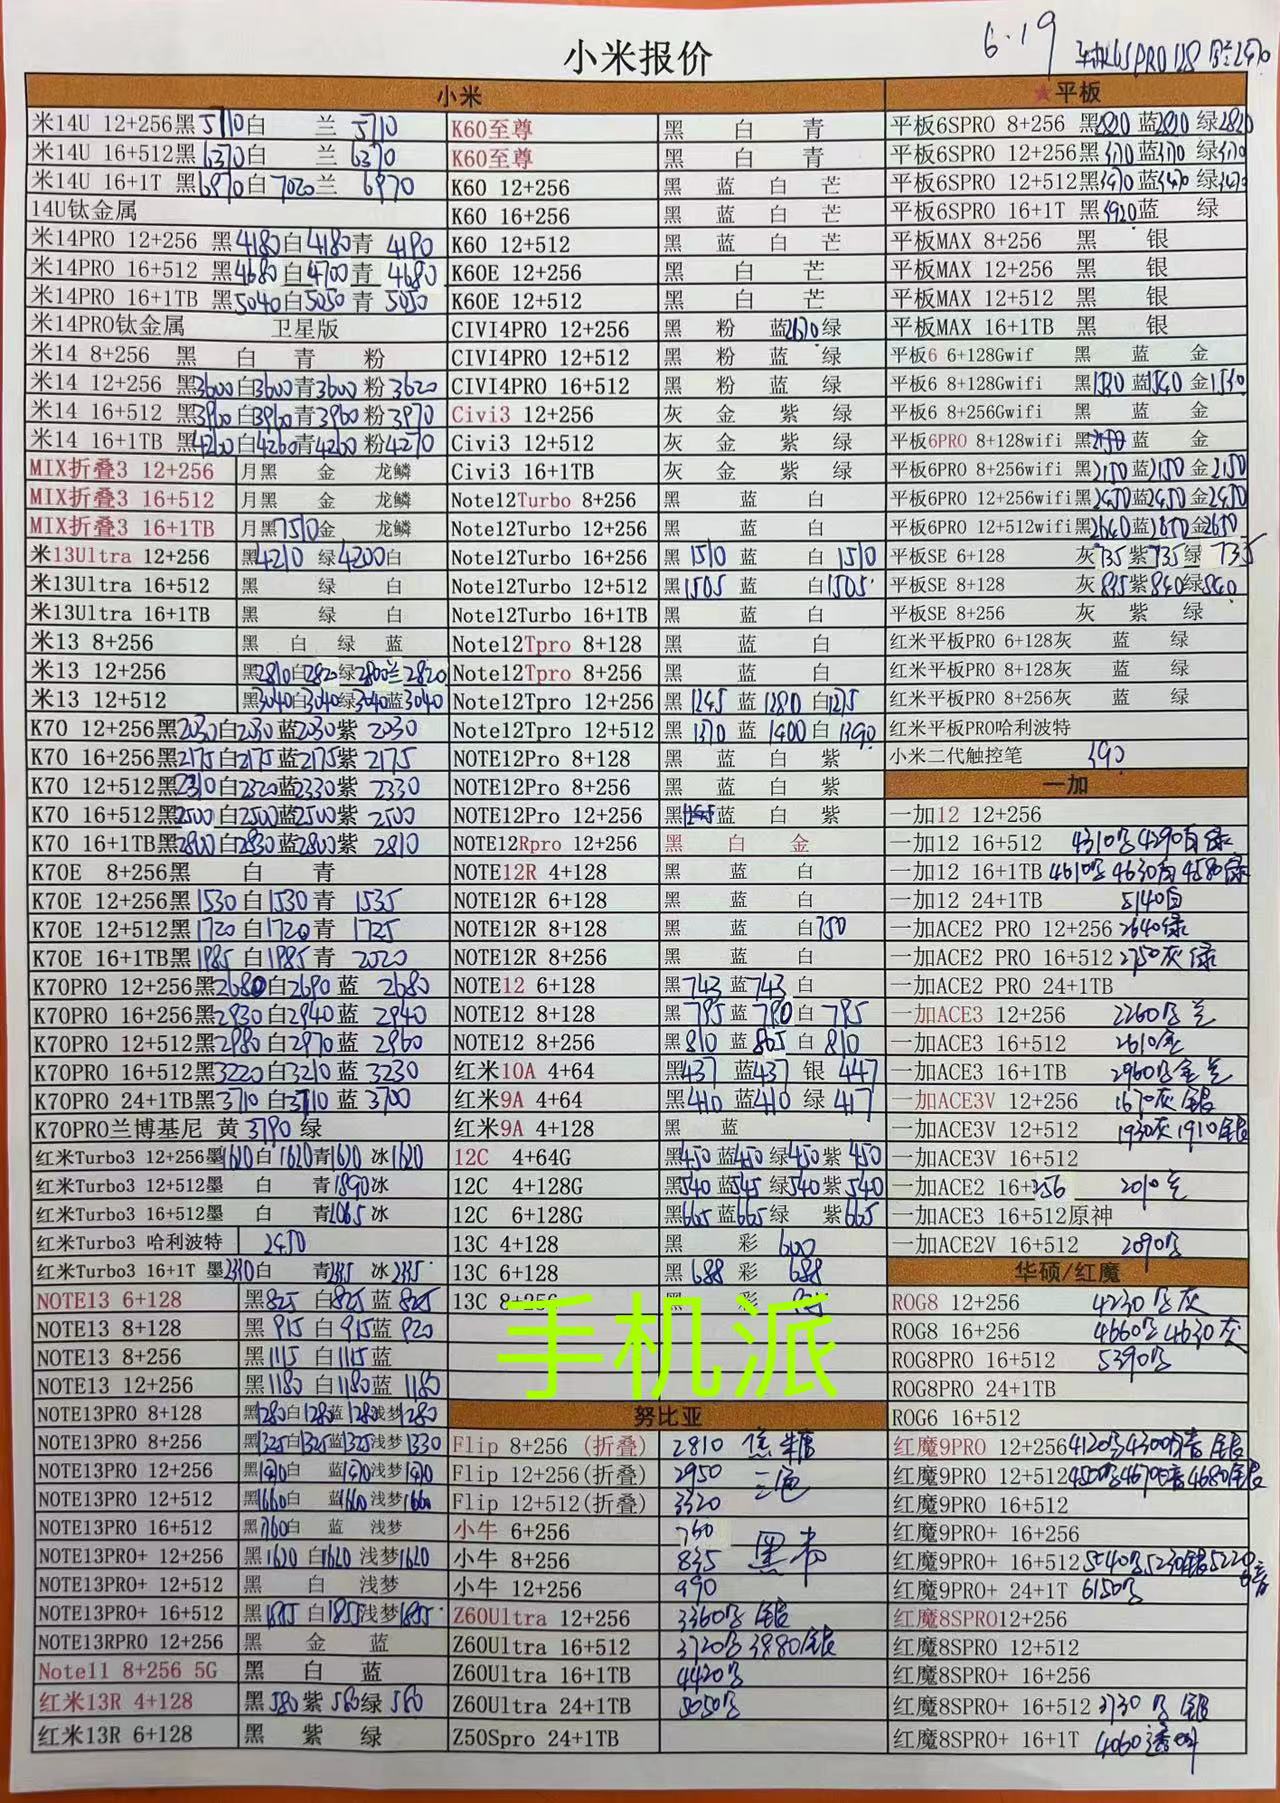 小米报价
6.19
小米
米14U 12+256黑5710白 兰 5710
米14U 16+512黑6370白 兰 6370
米14U 16+1T 黑6970白7020兰 6970
14U钛金属
米14PRO 12+256 黑4180白4180青 4190
米14PRO 16+512 黑4680白4700青 4680
米14PRO 16+1TB 黑5040白5050青 5050
米14PRO钛金属 卫星版
米14 8+256 黑 白 青 粉
米14 12+256 黑3600白3600青3600粉3620
米14 16+512 黑3960白3960青3960粉3970
米14 16+1TB 黑4260白4260青4260粉4270
MIX折叠3 12+256 月黑 金 龙鳞
MIX折叠3 16+512 月黑 金 龙鳞
MIX折叠3 16+1TB 月黑7510金 龙鳞
米13Ultra 12+256 黑4210 绿4200白
米13Ultra 16+512 黑 绿 白
米13Ultra 16+1TB 黑 绿 白
米13 8+256 黑 白 绿 蓝
米13 12+256 黑2810白2820绿2800兰2820
米13 12+512 黑3040白3040绿3040蓝3040
K70 12+256黑2030白2030蓝2030紫 2030
K70 16+256黑2175白2175蓝2175紫 2175
K70 12+512黑2310白2320蓝2330紫 2330
K70 16+512黑2500白2500蓝2500紫 2500
K70 16+1TB黑2800白2830蓝2800紫 2810
K70E 8+256黑 白 青
K70E 12+256黑1530白1530青 1535
K70E 12+512黑1720白1720青 1725
K70E 16+1TB黑1985白1985青 2020
K70PRO 12+256黑2680白2690蓝 2680
K70PRO 16+256黑2930白2940蓝 2940
K70PRO 12+512黑2980白2970蓝 2960
K70PRO 16+512黑3220白3210蓝 3230
K70PRO 24+1TB黑3710白3710蓝 3700
K70PRO兰博基尼 黄3790绿
红米Turbo3 12+256墨1620白1620青1620冰1620
红米Turbo3 12+512墨 白 青1890冰
红米Turbo3 16+512墨 白 青2065冰
红米Turbo3 哈利波特 2450
红米Turbo3 16+1T 墨2330白 青2335 冰2335
NOTE13 6+128 黑825 白825蓝825
NOTE13 8+128 黑915 白915蓝920
NOTE13 8+256 黑1115 白1115蓝
NOTE13 12+256 黑1180 白1180蓝 1180
NOTE13PRO 8+128 黑1280白1280蓝1280浅梦1280
NOTE13PRO 8+256 黑1325白1325蓝1325浅梦1330
NOTE13PRO 12+256 黑 白 蓝 浅梦
NOTE13PRO 12+512 黑1660白 蓝1660浅梦1660
NOTE13PRO 16+512 黑1760白 蓝 浅梦
NOTE13PRO+ 12+256 黑1620 白1620 浅梦1620
NOTE13PRO+ 12+512 黑 白 浅梦
NOTE13PRO+ 16+512 黑1855 白1855浅梦1855
NOTE13RPRO 12+256 黑 金 蓝
Note11 8+256 5G 黑 白 蓝
红米13R 4+128 黑580紫560绿560
红米13R 6+128 黑 紫 绿
K60至尊 黑 白 青
K60至尊 黑 白 青
K60 12+256 黑 蓝 白 芒
K60 16+256 黑 蓝 白 芒
K60 12+512 黑 蓝 白 芒
K60E 12+256 黑 白 芒
K60E 12+512 黑 白 芒
CIVI4PRO 12+256 黑 粉 蓝2670绿
CIVI4PRO 12+512 黑 粉 蓝 绿
CIVI4PRO 16+512 黑 粉 蓝 绿
Civi3 12+256 灰 金 紫 绿
Civi3 12+512 灰 金 紫 绿
Civi3 16+1TB 灰 金 紫 绿
Note12Turbo 8+256 黑 蓝 白
Note12Turbo 12+256 黑 蓝 白
Note12Turbo 16+256 黑1510 蓝 白 1510
Note12Turbo 12+512 黑1505 蓝 白1505
Note12Turbo 16+1TB 黑 蓝 白
Note12Tpro 8+128 黑 蓝 白
Note12Tpro 8+256 黑 蓝 白
Note12Tpro 12+256 黑1245 蓝1280白1275
Note12Tpro 12+512 黑1370 蓝 1400白1390
NOTE12Pro 8+128 黑 蓝 白 紫
NOTE12Pro 8+256 黑 蓝 白 紫
NOTE12Pro 12+256 黑 蓝 白 紫
NOTE12Rpro 12+256 黑 白 金
NOTE12R 4+128 黑 蓝 白
NOTE12R 6+128 黑 蓝 白
NOTE12R 8+128 黑 蓝 白750
NOTE12R 8+256 黑 蓝 白
NOTE12 6+128 黑743 蓝743 白
NOTE12 8+128 黑795 蓝780 白795
NOTE12 8+256 黑810 蓝865 白810
红米10A 4+64 黑437 蓝437 银 447
红米9A 4+64 黑410 蓝410 绿 417
红米9A 4+128 黑 蓝
12C 4+64G 黑450 蓝450 绿450紫 450
12C 4+128G 黑540 蓝545 绿540紫540
12C 6+128G 黑665 蓝665绿 紫665
13C 4+128 黑 彩 600
13C 6+128 黑 688 彩 688
13C 8+256 黑 彩
手机派
努比亚
Flip 8+256 (折叠) 2810 焦糖
Flip 12+256(折叠) 2950 三色
Flip 12+512(折叠) 3320
小牛 6+256 760
小牛 8+256 835 黑
小牛 12+256 990
Z60Ultra 12+256 3360 银
Z60Ultra 16+512 3720 3880银
Z60Ultra 16+1TB 4420
Z60Ultra 24+1TB 5050
Z50Spro 24+1TB
★平板
平板6SPRO 8+256 黑2820蓝2810 绿2820
平板6SPRO 12+256黑3170蓝3170 绿3170
平板6SPRO 12+512黑3470蓝3470 绿3470
平板6SPRO 16+1T 黑3920蓝 绿
平板MAX 8+256 黑 银
平板MAX 12+256 黑 银
平板MAX 12+512 黑 银
平板MAX 16+1TB 黑 银
平板6 6+128Gwif 黑 蓝 金
平板6 8+128Gwifi 黑1530 蓝1540 金1530
平板6 8+256Gwifi 黑 蓝 金
平板6PRO 8+128wifi 黑 蓝 金
平板6PRO 8+256wifi 黑2150蓝2150 金2150
平板6PRO 12+256wifi黑2450蓝2450 金2450
平板6PRO 12+512wifi黑2640蓝2650金2650
平板SE 6+128 灰735紫735绿 735
平板SE 8+128 灰835紫840绿840
平板SE 8+256 灰 紫 绿
红米平板PRO 6+128灰 蓝 绿
红米平板PRO 8+128灰 蓝 绿
红米平板PRO 8+256灰 蓝 绿
红米平板PRO哈利波特
小米二代触控笔 390
一加
一加12 12+256
一加12 16+512 4310 4290白绿
一加12 16+1TB 4610 4630白4580绿
一加12 24+1TB 5140白
一加ACE2 PRO 12+256 2640绿
一加ACE2 PRO 16+512 2750灰绿
一加ACE2 PRO 24+1TB
一加ACE3 12+256 2260 兰
一加ACE3 16+512 2610金
一加ACE3 16+1TB 2960 金兰
一加ACE3V 12+256 1670灰银
一加ACE3V 12+512 1930灰1910银
一加ACE3V 16+512
一加ACE2 16+256 2010兰
一加ACE3 16+512原神
一加ACE2V 16+512 2090
华硕/红魔
ROG8 12+256 4230 灰
ROG8 16+256 4660 4630灰
ROG8PRO 16+512 5390
ROG8PRO 24+1TB
ROG6 16+512
红魔9PRO 12+256 4120 4300 银
红魔9PRO 12+512 4550 4670 4680银
红魔9PRO 16+512
红魔9PRO+ 16+256
红魔9PRO+ 16+512 5540 5230银5220
红魔9PRO+ 24+1T 6150
红魔8SPRO12+256
红魔8SPRO 12+512
红魔8SPRO+ 16+256
红魔8SPRO+ 16+512 3730 银
红魔8SPRO+ 16+1T 4060透明